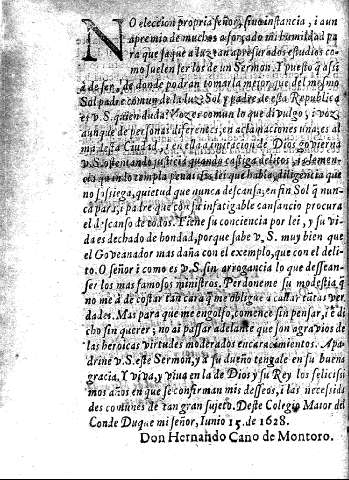 NO eleccion propria señor, sino instancia, i aun
apremio de muchos a forçado mi humildad pa
ra que saque a luz tan apresurados estudios co-
mo suelen ser los de un Sermon. Y puesto q̃ asi
a de ser, de donde podran tomarla mejor que del mesmo
Sol padre comun de la luz? Sol y padre de esta Republica
es v.S. quien duda? Voz es comun lo que divulgo, i voz,
aunque de personas diferentes, en aclamaciones una; es al
ma desta Ciudad, i en ella a imitacion de Dios govierna
v.S. ostentando justicia quando castiga delitos
quando templa penas de lei que habla, diligencia que
no sossiega, quietud que nunca descansa, en fin Sol q̃ nun
ca para, i padre que con su infatigable cansancio procura
el descanso de todos. Tiene su conciencia por lei, y su vi
da es dechado de bondad, porque sabe v.S. muy bien que
el Governador mas daña con el exemplo, que con el deli-
to. O señor i como es v.S. sin arrogancia lo que dessean-
ser los mas famosos ministros. Perdoneme su modestia q̃
no me à de costar tan cara q̃ me obligue a callar tãtas ver-
dades. Mas para que me engolfo, comencè sin pensar, i è di
cho sin querer; no al passar adelante que son agravios de
las heroicas virtudes moderados encaracimientos. Apa
drine v.S. este Sermon, y a su dueño tengale en su buena
gracia. Y viva, y viva en la de Dios y su Rey los felicissi
mos años en que se confirman mis desseos, i las necessida
des comunes de tan gran sujeto. Deste Colegio Maior del
Conde Duque mi señor, Iunio 15. de 1628.
Don Hernando Cano de Montoro.